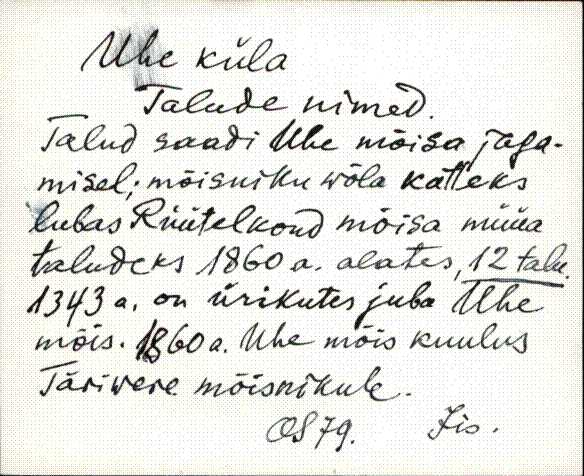 Uhe küla
Talude nimed.
Talud saadi Uhe mõisa jaga-
misel; mõisniku wõla katteks
lubas Rüütelkond mõisa müüa
taludeks 1860 a. alates, 12 talu.
1343 a. on ürikutes juba Uhe
mõis. 1860 a. Uhe mõis kuulus
Täriwere mõisnikule.
OS 79. Jis.